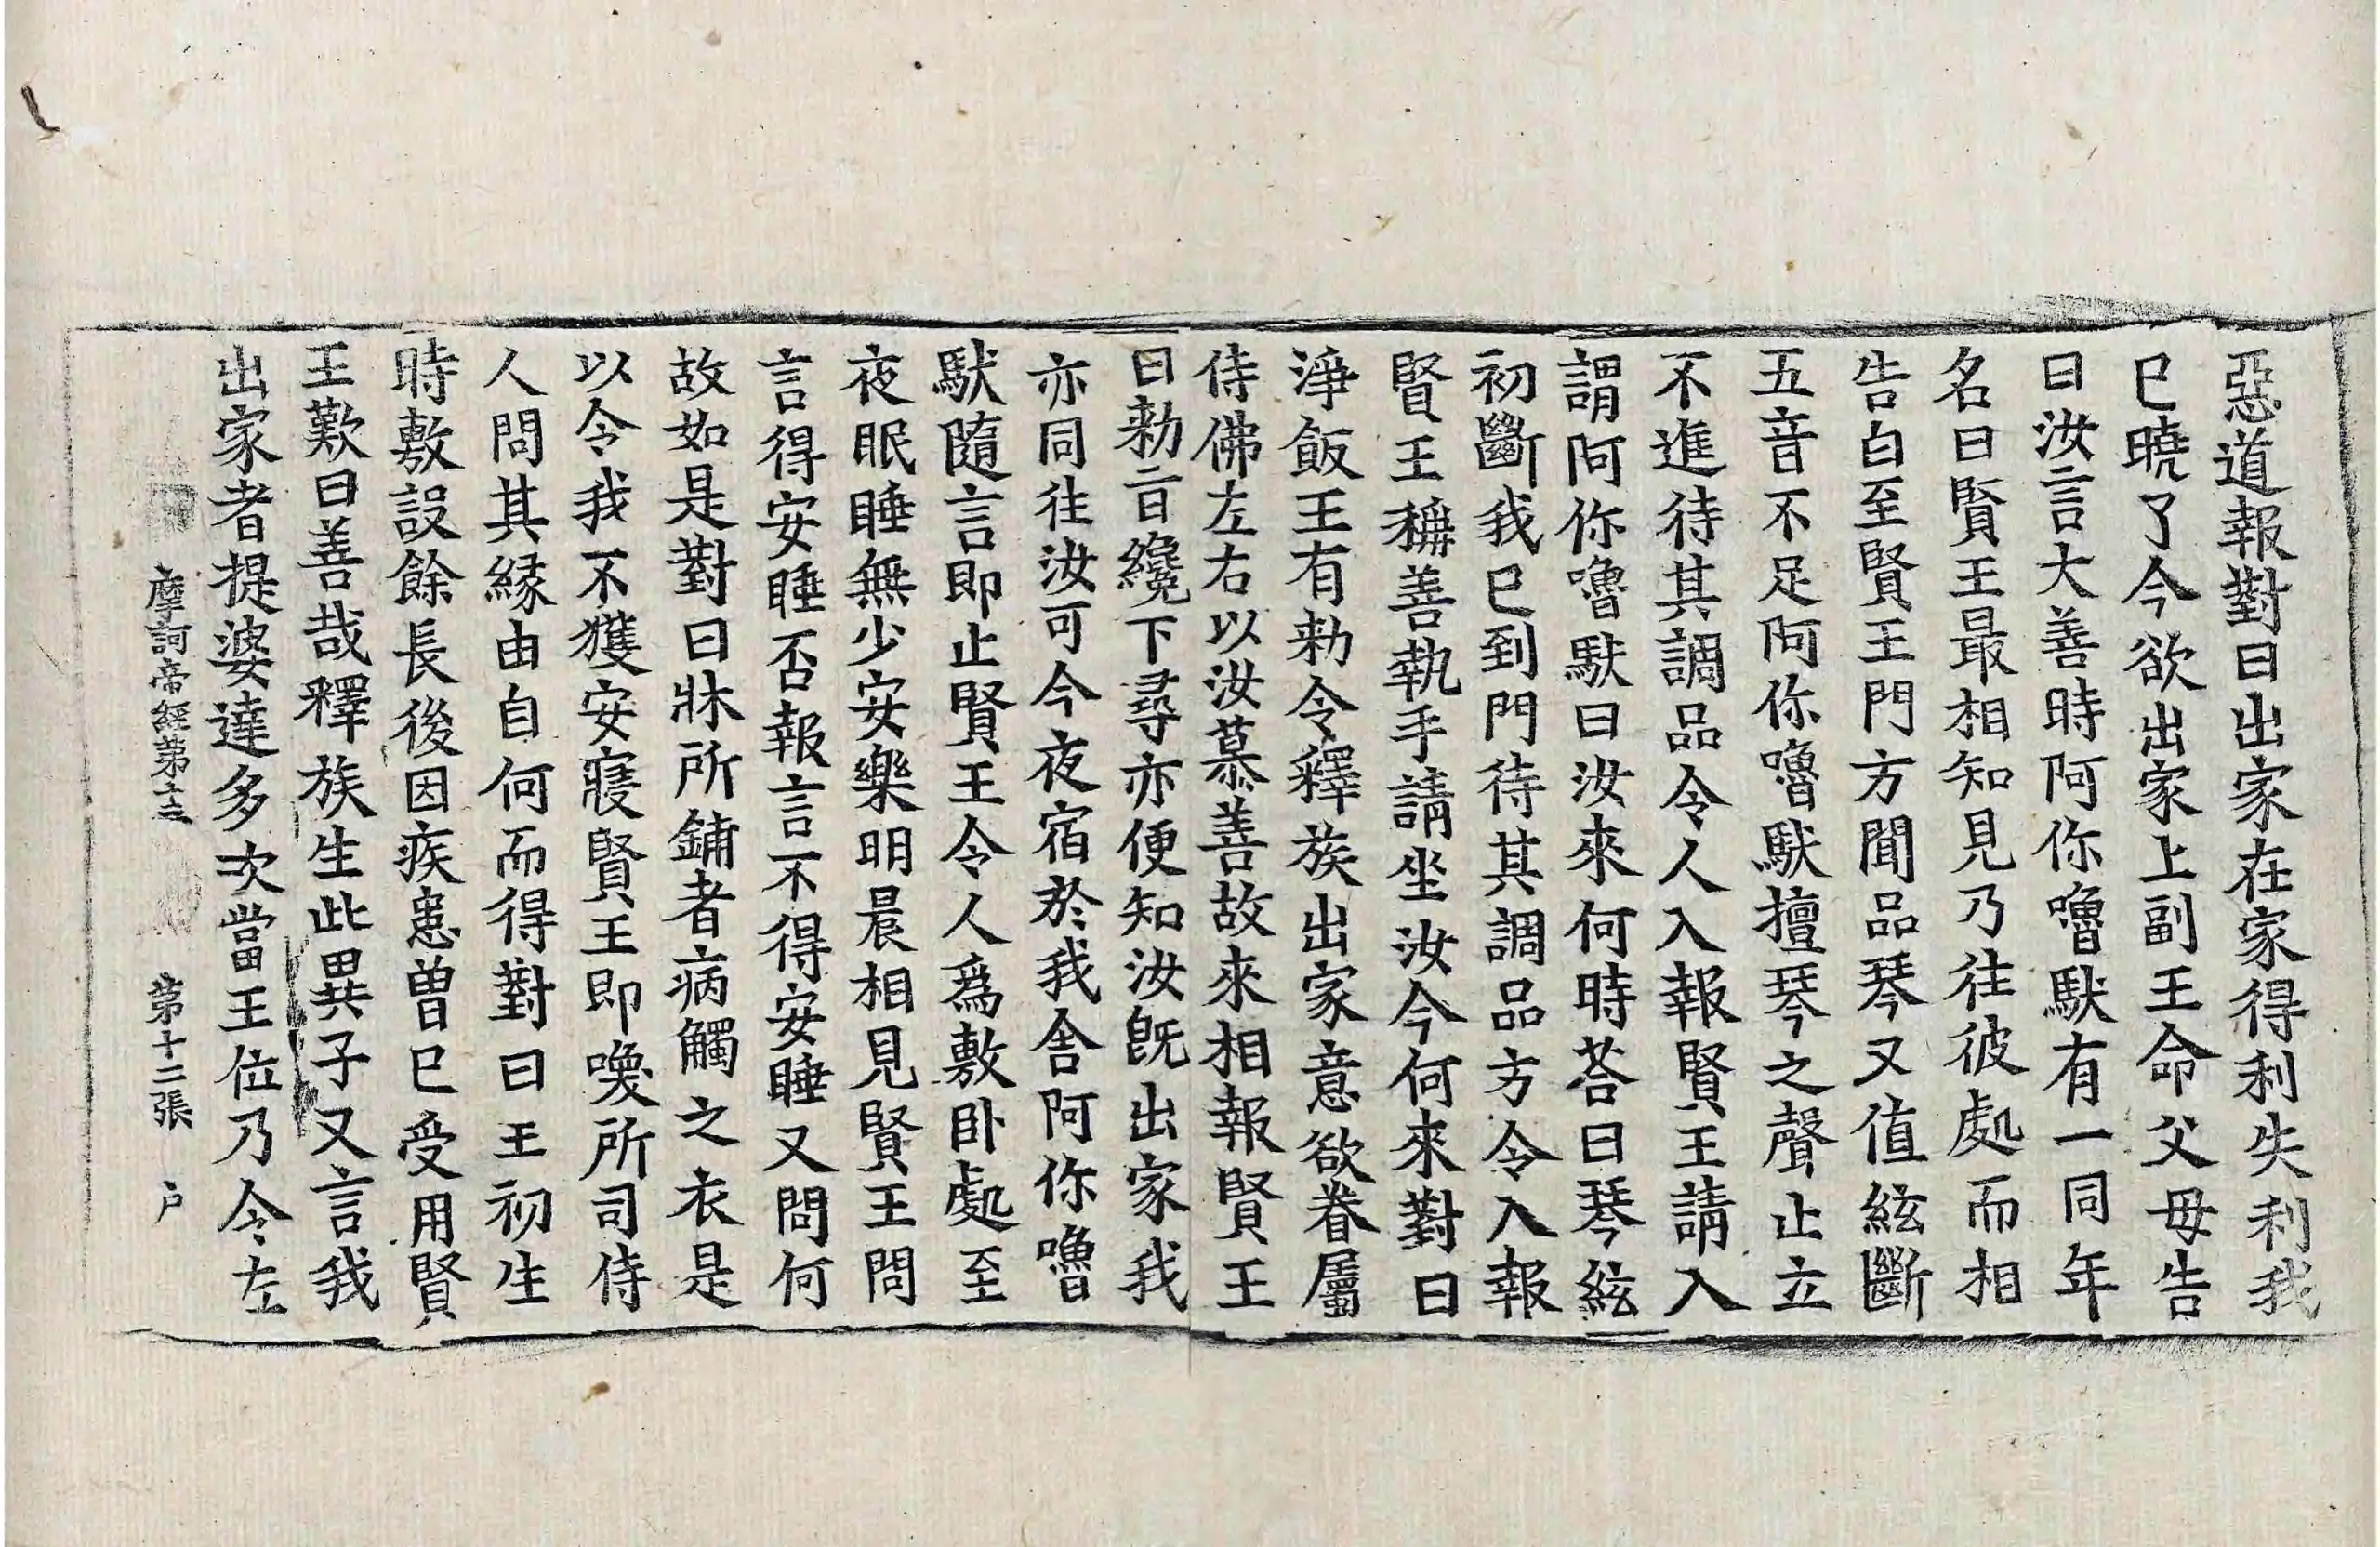 惡道報對曰出家在家得利失利我
巳曉了今欲出家上副王命父母告
曰汝言大善時阿你嚕馱有一同年
名曰賢王最相知見乃往彼處而相
告白至賢王門方聞品琴又值絃斷
五音不足阿你嚕馱擅琴之聲止立
不進待其調品令人入報賢王請入
謂阿你嚕馱曰汝來何時荅曰琴絃
初斷我巳到門待其調品方令入報
賢王稱善執手請坐汝今何來對曰
淨飯王有勑令釋族出家意欲眷屬
侍佛左右以汝慕善故來相報賢王
曰勑音纔下尋亦便知汝旣出家我
亦同往汝可今夜宿於我舍阿你嚕
馱隨言即止賢王令人爲敷卧處至
夜眠睡無少安樂明晨相見賢王問
言得安睡否報言不得安睡又問何
故如是對曰牀所鋪者病觸之衣是
以令我不獲安寢賢王即喚所司侍
人問其縁由自何而得對曰王初生
時敷設餘長後因疾患曽巳受用賢
王歎曰善哉釋族生此異子又言我
出家者提婆達多次當王位乃令左
摩訶帝經第十三 第十二張 户